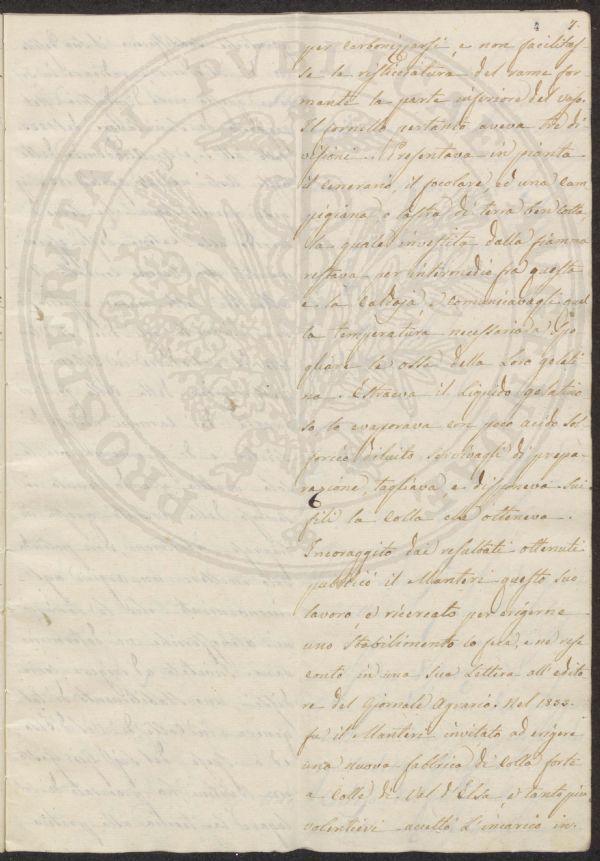 7.
per carbonizzarsi, e non facilitas=
se la riflicatura del rame for
mante la parte inferiore del vaso.
Il fornello pertanto aveva tre di
visioni. Presentava in pianta
il cenerario, il focolare, ed una cam
pigiana o lastra di terra ben cotta
la quale investita dalla fiamma
restava per intermedio fra questa
e la Caldaja, e comunicavagli quel
la temperatura necessaria a spo
gliare le ossa della loro gelati
na. Estraeva il liquido gelatino
so lo evaporava con poco acido sol
forico diluito, servivagli di prepa=
razione, tagliava e disponeva sui
fili la Colla che otteneva.
Incoraggito dai resultati ottenuti
pubblicò il Manteri questo suo
lavoro, e ricercato per erigerne
uno Stabilimento lo fece, e ne rese
conto in una sua Lettera all'edito
re del Giornale Agrario. Nel 1833.
fu il Manteri invitato ad erigere
una nuova fabbrica di Colla forte
a Colle di Val d'Elsa, e tanto più
volentieri accettò l'incarico in=
PROSPERITATI PUBLICAE